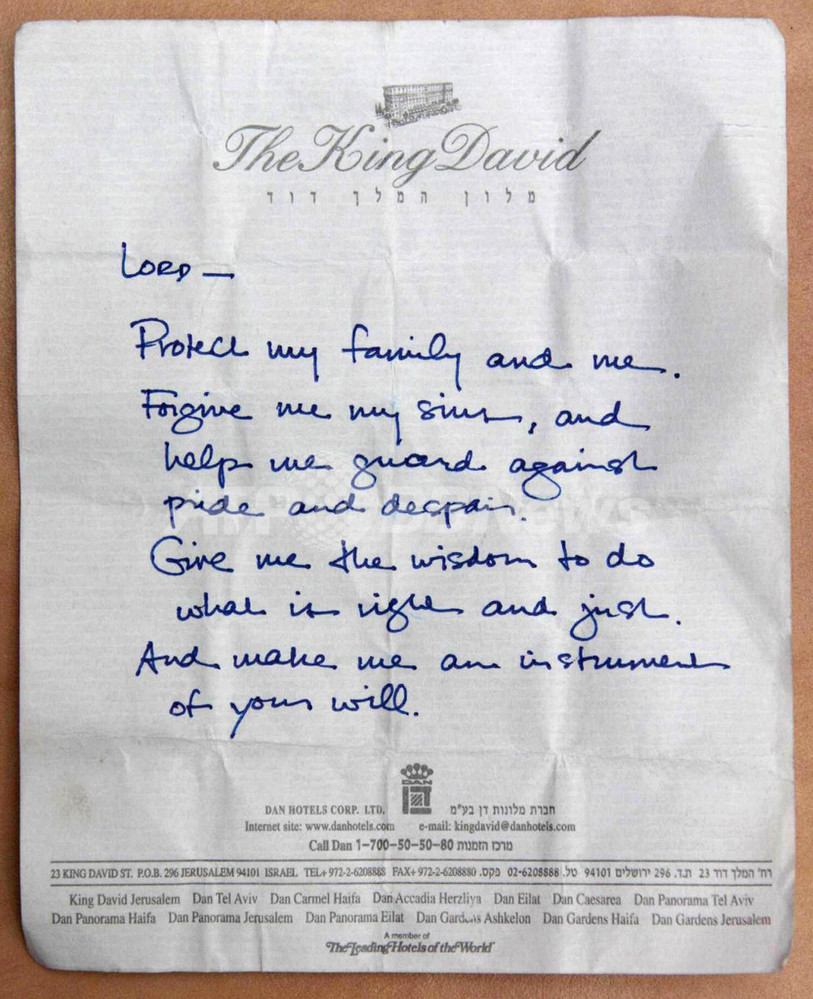 The King David
מלון המלך דוד
LORD —
Protect my family and me.
Forgive me my sins, and
help me guard against
pride and despair.
Give me the wisdom to do
what is right and just.
And make me an instrument
of your will.
DAN
DAN HOTELS CORP. LTD. חברת מלונות דן בע"מ
Internet site: www.danhotels.com e-mail: kingdavid@danhotels.com
Call Dan 1-700-50-50-80 מרכז הזמנות
23 KING DAVID ST. P.O.B. 296 JERUSALEM 94101 ISRAEL TEL+972-2-6208888 FAX+972-2-6208880 רח' המלך דוד 23 ת.ד. 296 ירושלים 94101 טל. 02-6208888 פקס.
King David Jerusalem Dan Tel Aviv Dan Carmel Haifa Dan Accadia Herzliya Dan Eilat Dan Caesarea Dan Panorama Tel Aviv
Dan Panorama Haifa Dan Panorama Jerusalem Dan Panorama Eilat Dan Gardens Ashkelon Dan Gardens Haifa Dan Gardens Jerusalem
A member of
The Leading Hotels of the World